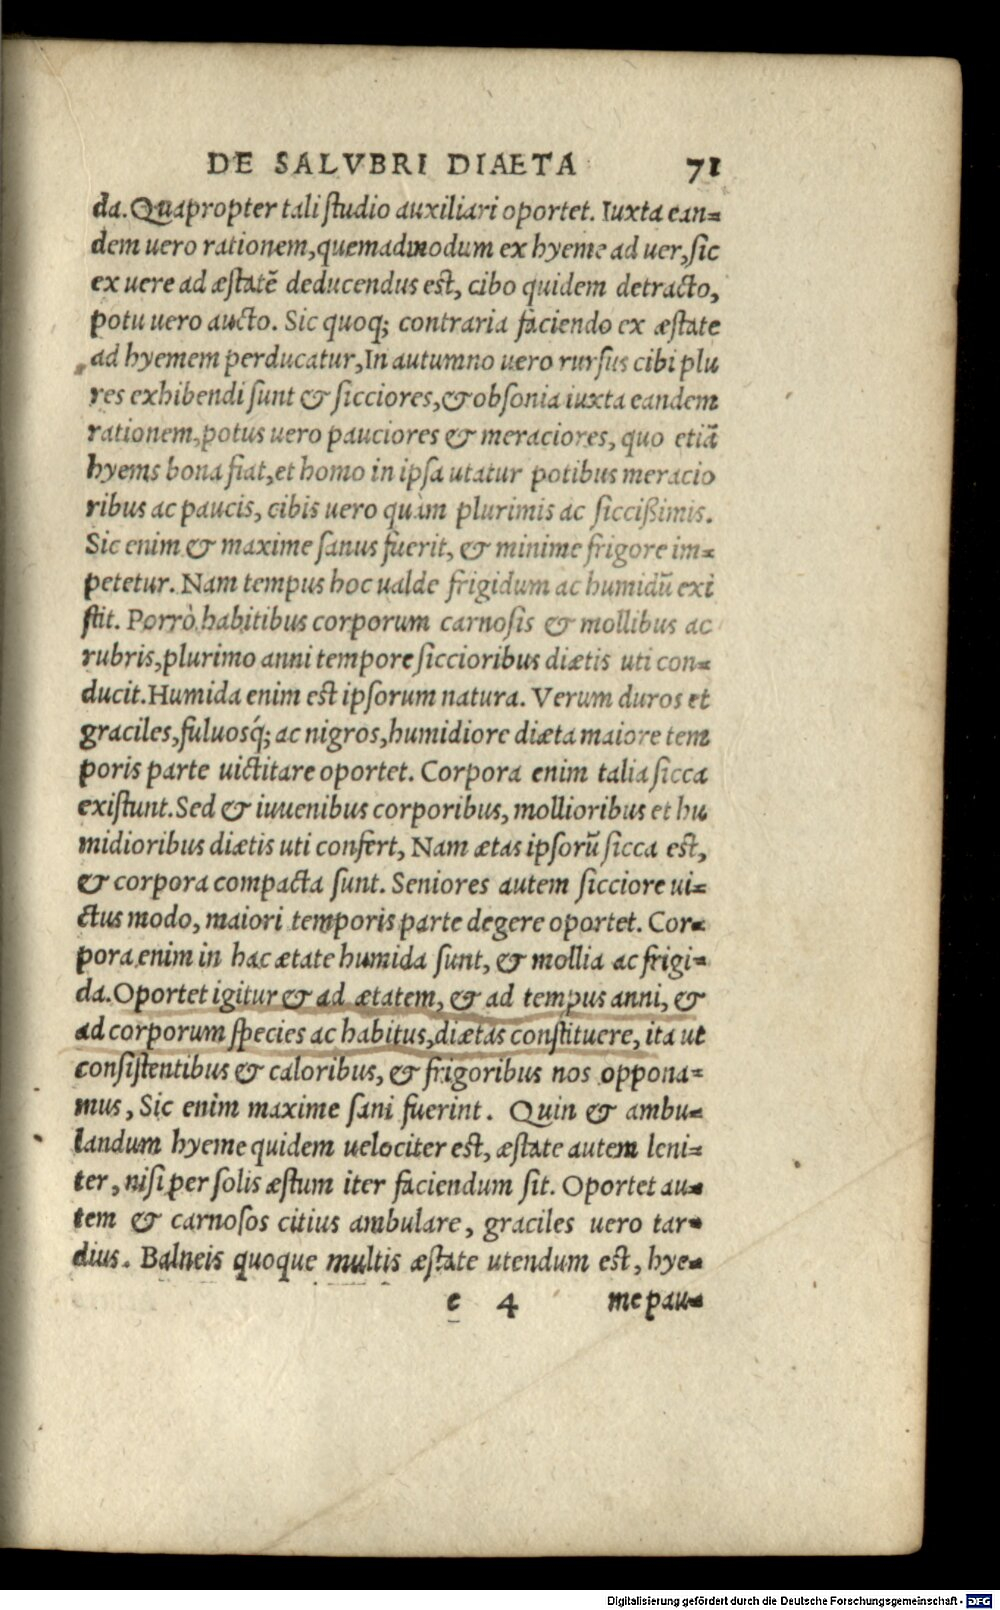 DE SALVBRI DIAETA 71
da. Quapropter tali ſtudio auxiliari oportet. Iuxta ean=
dem uero rationem, quemadmodum ex hyeme ad uer, ſic
ex uere ad æſtatē deducendus eſt, cibo quidem detracto,
potu uero aucto. Sic quoq; contraria faciendo ex æſtate
ad hyemem perducatur, In autumno uero rurſus cibi plu
res exhibendi ſunt & ſicciores, & obſonia iuxta eandem
rationem, potus uero pauciores & meraciores, quo etiā
hyems bona fiat, et homo in ipſa utatur potibus meracio
ribus ac paucis, cibis uero quàm plurimis ac ſiccißimis.
Sic enim & maxime ſanus fuerit, & minime frigore im=
petetur. Nam tempus hoc ualde frigidum ac humidū exi
ſtit. Porrò habitibus corporum carnoſis & mollibus ac
rubris, plurimo anni tempore ſiccioribus diætis uti con=
ducit. Humida enim eſt ipſorum natura. Verum duros et
graciles, fuluosq́; ac nigros, humidiore diæta maiore tem
poris parte uictitare oportet. Corpora enim talia ſicca
exiſtunt. Sed & iuuenibus corporibus, mollioribus et hu
midioribus diætis uti confert, Nam ætas ipſorū ſicca eſt,
& corpora compacta ſunt. Seniores autem ſicciore ui=
ctus modo, maiori temporis parte degere oportet. Cor=
pora enim in hac ætate humida ſunt, & mollia ac frigi=
da. Oportet igitur & ad ætatem, & ad tempus anni, &
ad corporum ſpecies ac habitus, diætas conſtituere, ita ut
conſiſtentibus & caloribus, & frigoribus nos oppona=
mus, Sic enim maxime ſani fuerint. Quin & ambu=
landum hyeme quidem uelociter eſt, æſtate autem leni=
ter, niſi per ſolis æſtum iter faciendum ſit. Oportet au=
tem & carnoſos citius ambulare, graciles uero tar=
dius. Balneis quoque multis æſtate utendum eſt, hye=
e 4 me pau=
Digitalisierung gefördert durch die Deutsche Forschungsgemeinschaft - DFG